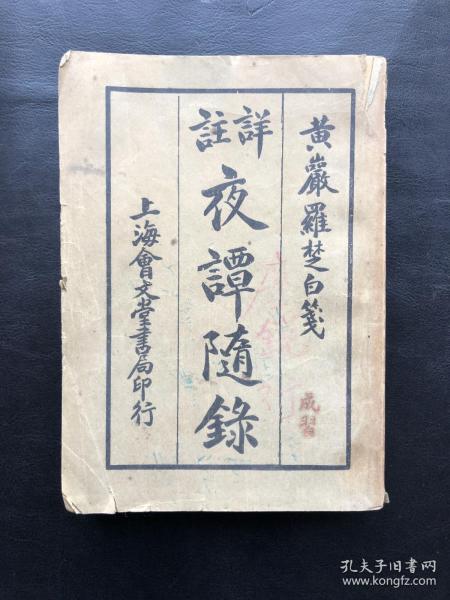 黃巖羅楚白箋
詳註
夜譚隨錄
上海會文堂書局印行
成習
孔夫子旧书网
www.kongfz.com